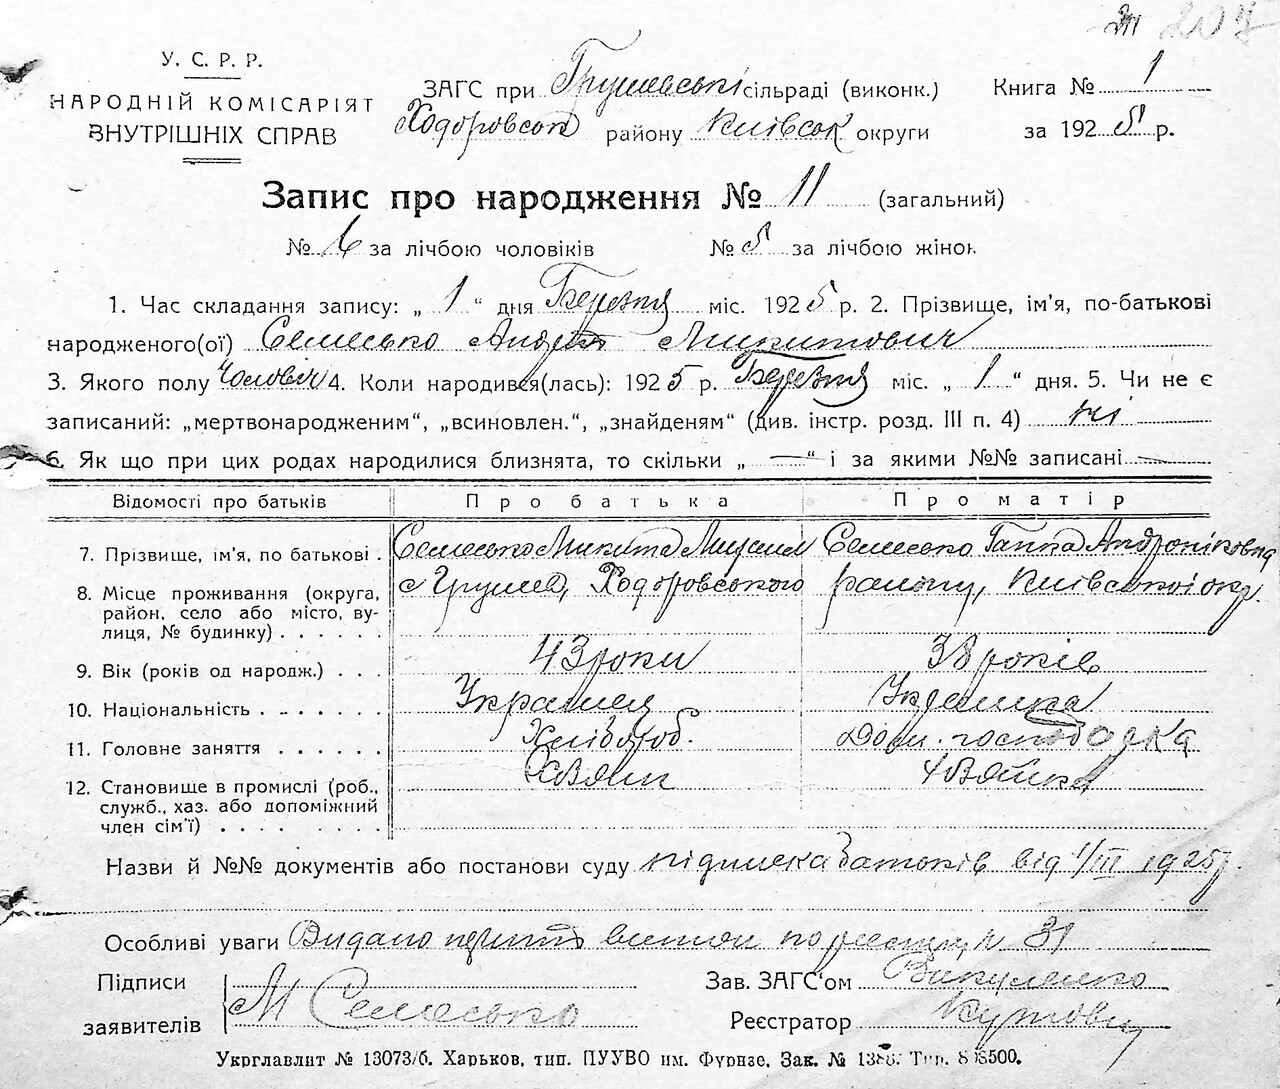 207
У. С. Р. Р.
НАРОДНІЙ КОМІСАРІЯТ
ВНУТРІШНІХ СПРАВ
ЗАГС при Грушевські сільраді (виконк.)
Ходоровськ району Київськ округи
Книга № 1
за 1925 р.
Запис про народження № 11 (загальний)
№ 6 за лічбою чоловіків № 5 за лічбою жінок
1. Час складання запису: „ 1 “ дня Березня міс. 1925 р. 2. Прізвище, ім'я, по-батькові
народженого(ої) Семесько Андрій Микитович
3. Якого полу Чоловіч 4. Коли народився(лась): 1925 р. Березня міс. „ 1 “ дня. 5. Чи не є
записаний: „мертвонародженим“, „всиновлен.“, „знайденям“ (див. інстр. розд. III п. 4) ні
6. Як що при цих родах народилися близнята, то скільки „ — “ і за якими №№ записані —
Відомості про батьків Про батька Про матір
7. Прізвище, ім'я, по батькові . Семесько Микита Семесько Ганка Андроніковна
8. Місце проживання (округа, район, село або місто, вулиця, № будинку) . . . . . . с Грушев, Ходоровського району, Київської окр.
9. Вік (років од народж.) . . . 43 роки 38 років
10. Національність . . . . . . . Українец Українка
11. Головне заняття . . . . . . Хлібороб. Дом. господарка
12. Становище в промислі (роб., служб., хаз. або допоміжний член сім'ї) . . . .
Назви й №№ документів або постанови суду підписка батьків від 1/III 1925р.
Особливі уваги Видано витяг по реєстру № 31
Підписи
заявителів М Семесько
Зав. ЗАГС'ом Викуленко
Реєстратор
Укрглавлит № 13073/б. Харьков, тип. ПУУВО им. Фурнзе. Зак. № 1386. Тир. 808500.